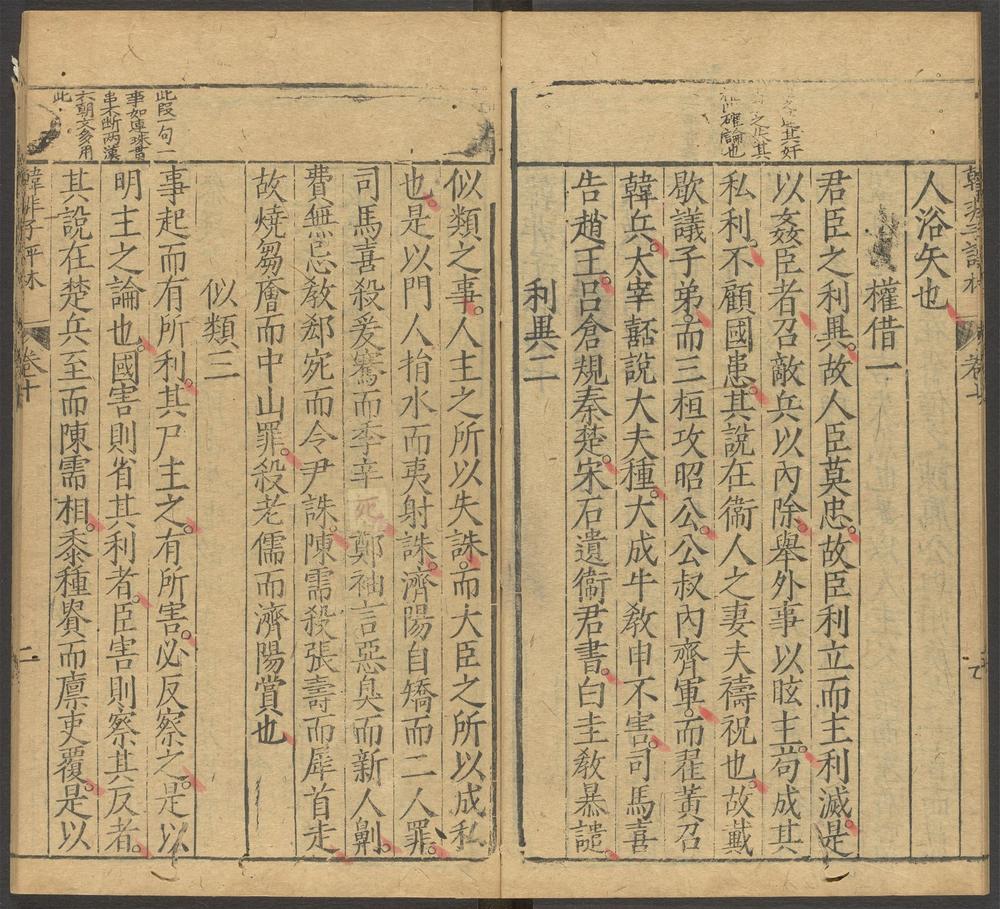 人浴矢也
權借一
君臣之利異。故人臣莫忠。故臣利立而主利滅。是
以姦臣者。召敵兵以內除。舉外事以眩主。苟成其
私利。不顧國患。其說在衞人之妻夫禱祝也。故戴
歇議子弟。而三桓攻昭公。公叔內齊軍。而翟黃召
韓兵。太宰嚭說大夫種。大成牛敎申不害。司馬喜
告趙王。呂倉規秦楚。宋石遺衞君書。白圭敎暴譴。
利異二
其奸
之
確論也
似類之事。人主之所以失誅。而大臣之所以成私
也。是以門人捐水而夷射誅。濟陽自矯而二人罪。
司馬喜殺爰騫而季辛死鄭袖言惡臭而新人劓。
費無忌敎郄宛而令尹誅。陳需殺張壽而犀首走
故燒芻廥而中山罪。殺老儒而濟陽賞也
似類三
事起而有所利。其尸主之。有所害。必反察之。是以
明主之論也。國害則省其利者。臣害則察其反者。
其說在楚兵至而陳需相。黍種貴而廩吏覆。是以
此段一句一
事如連珠貫
串不斷兩漢
六朝文多用
此
韓非子評林
卷十
二